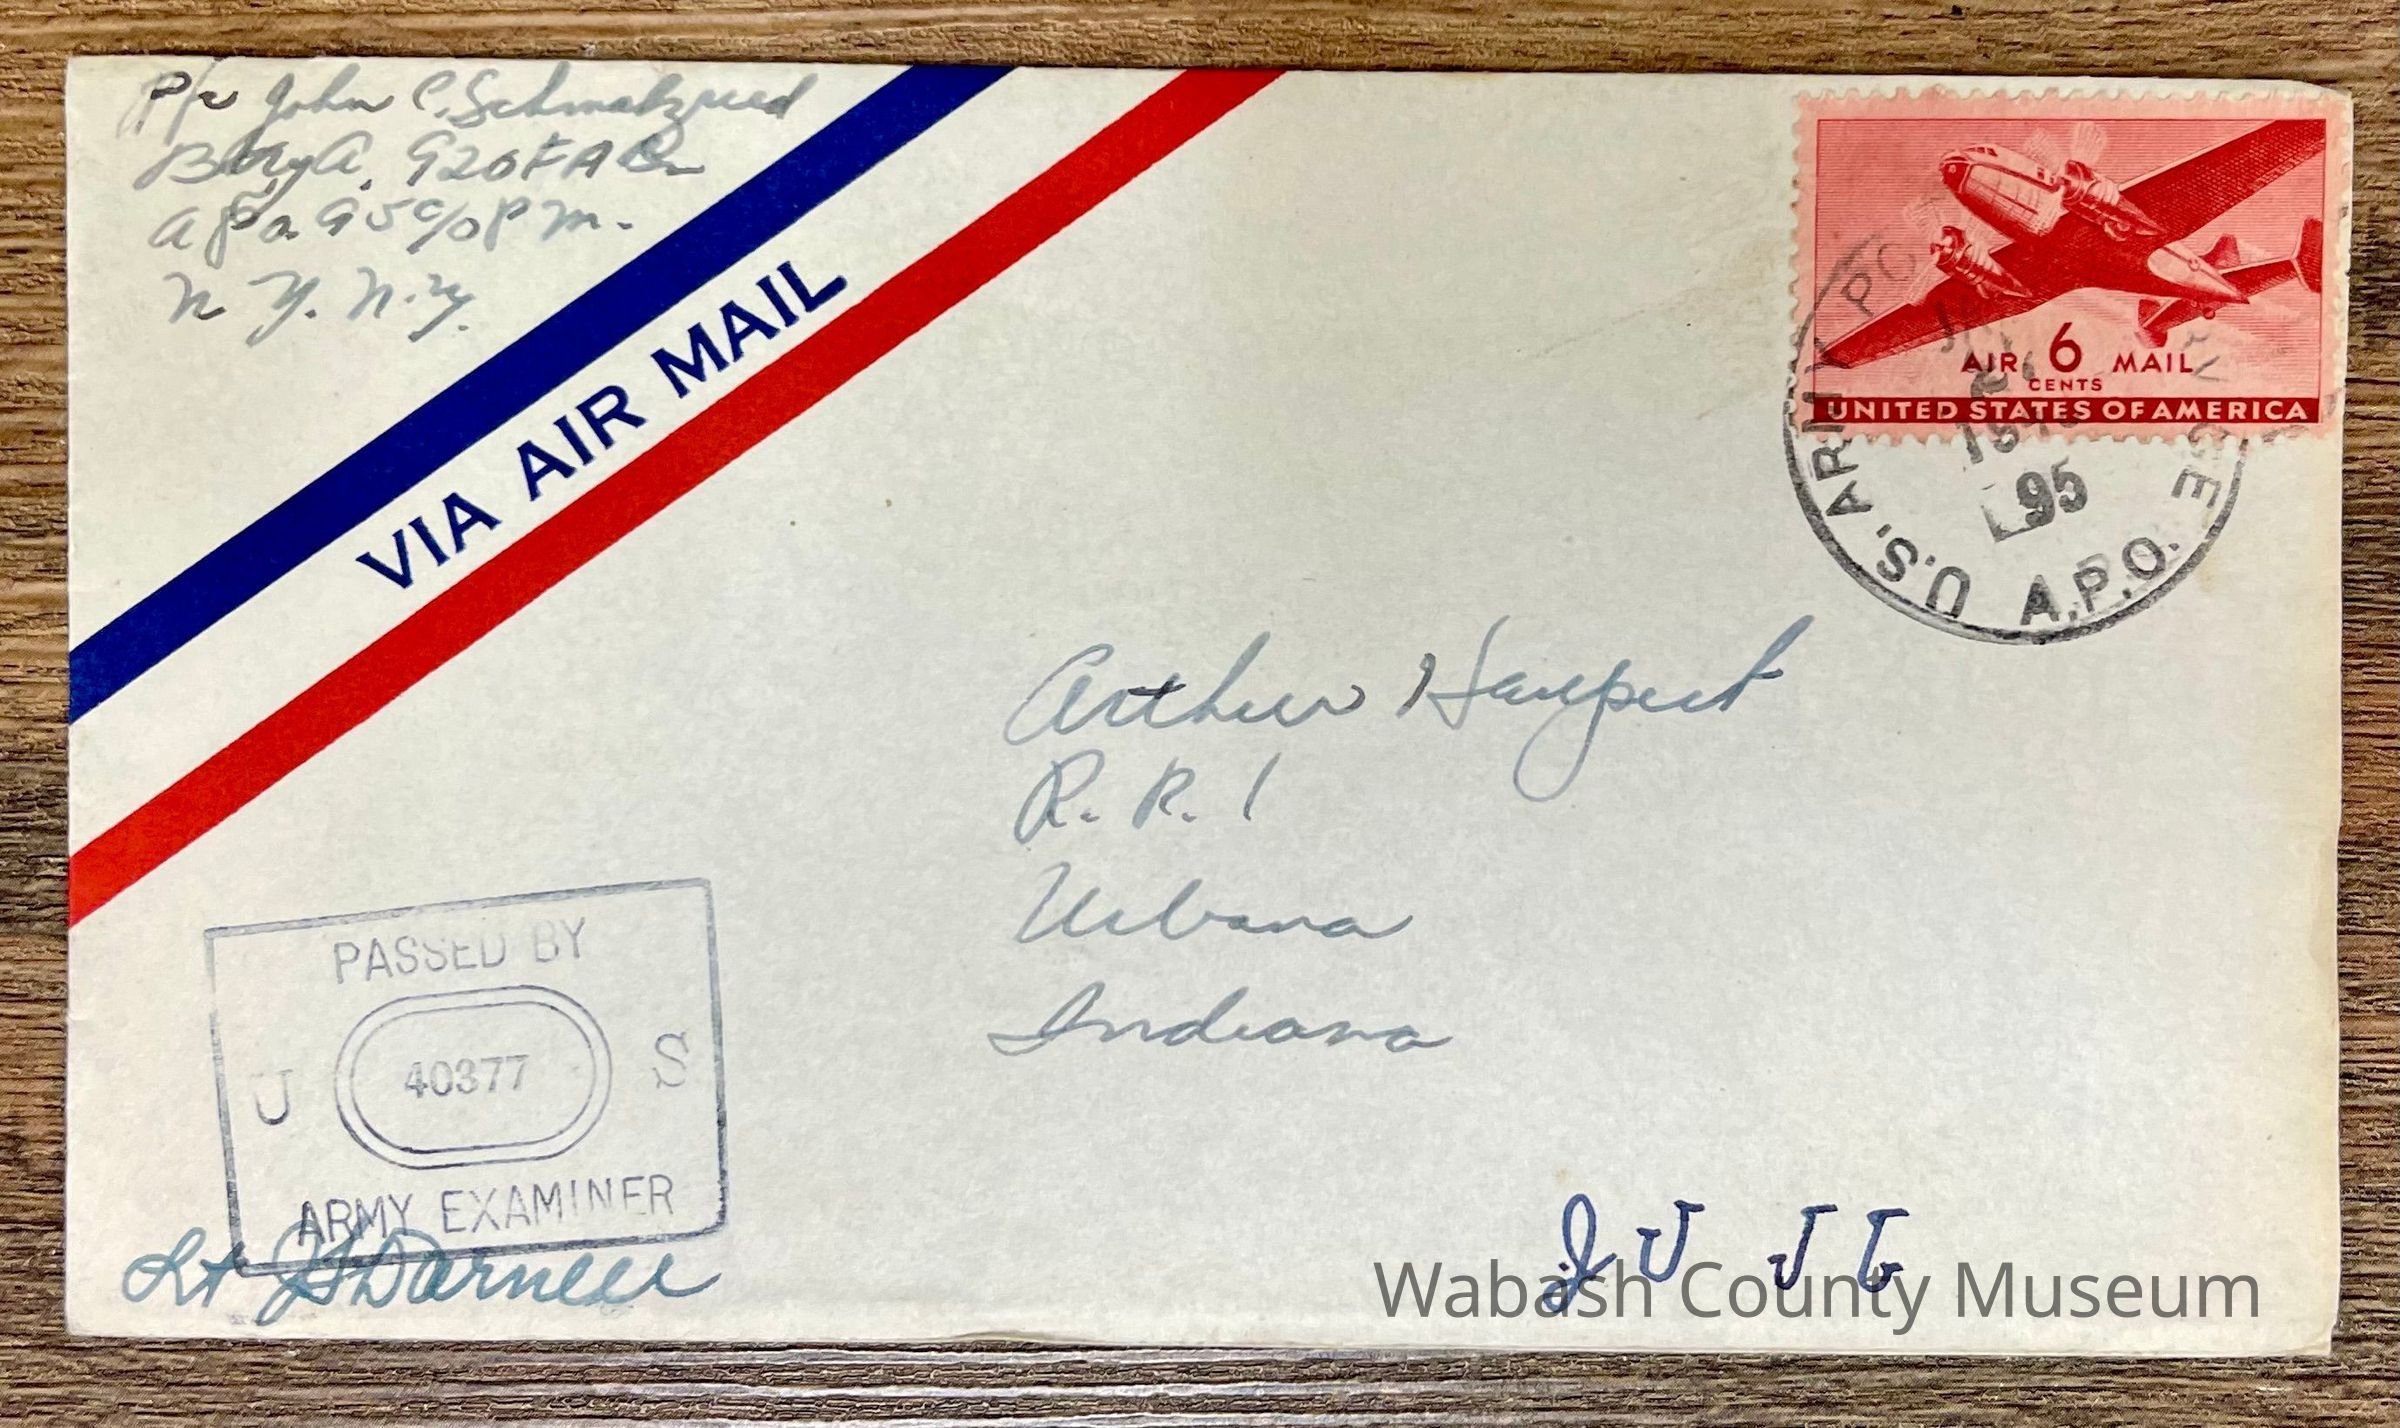 Pfc John C. Schmalzried
Btry A. 920 F A Bn
A P O. 95 c/o P M.
N. Y. N. Y.
VIA AIR MAIL
AIR 6 MAIL
CENTS
UNITED STATES OF AMERICA
U.S. ARMY
95
A.P.O.
Arthur Haupert
R. R. 1
Urbana
Indiana
PASSED BY
U 40377 S
ARMY EXAMINER
Lt Darnell
Wabash County Museum